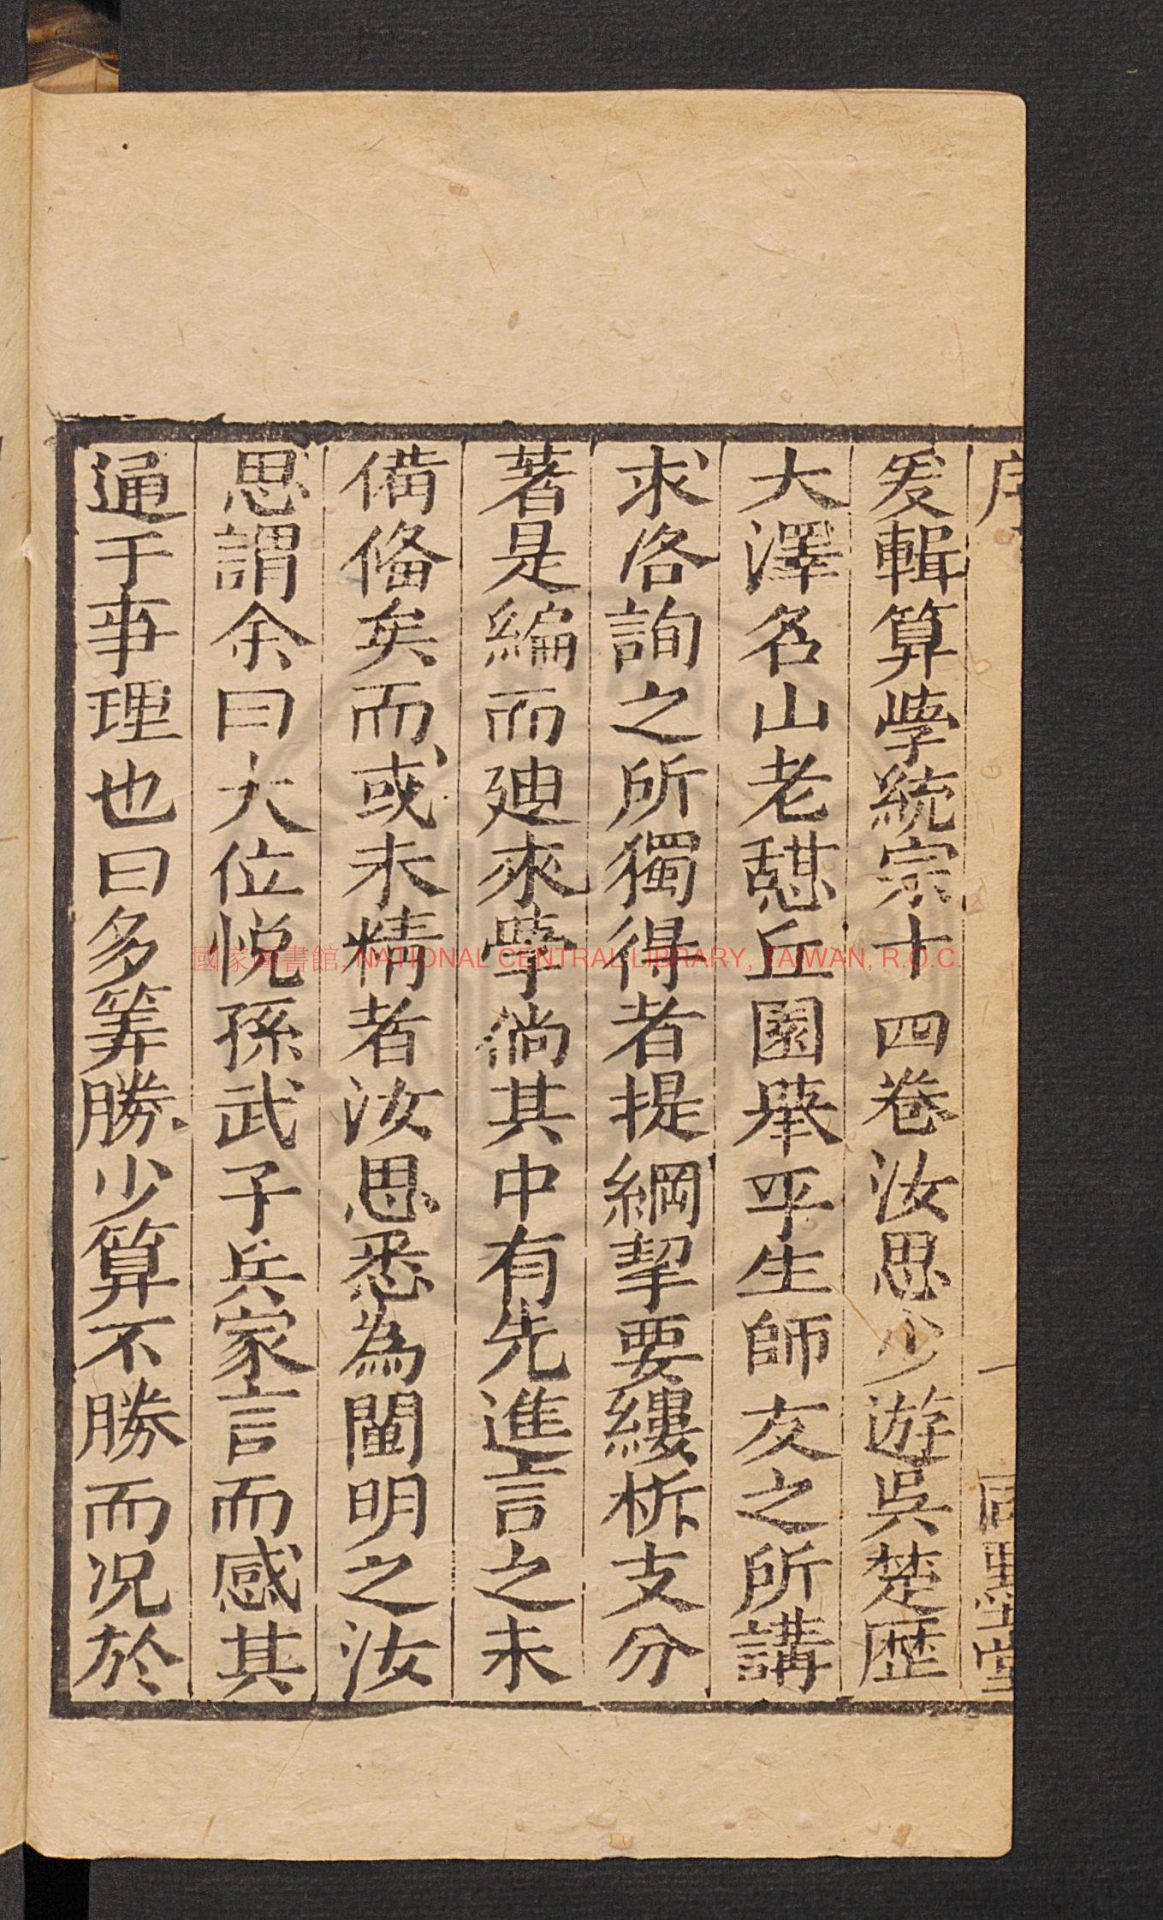 序
一
爰輯算學統宗十四卷汝思少遊吳楚歷
大澤名山老憇丘園舉平生師友之所講
求咨詢之所獨得者提綱挈要縷析支分
著是編而廸來學倘其中有先進言之未
備備矣而或未精者汝思悉為闡明之汝
思謂余曰大位悅孫武子兵家言而感其
通于事理也曰多筭勝少算不勝而况於
國家圖書館, NATIONAL CENTRAL LIBRARY, TAIWAN, R.O.C.